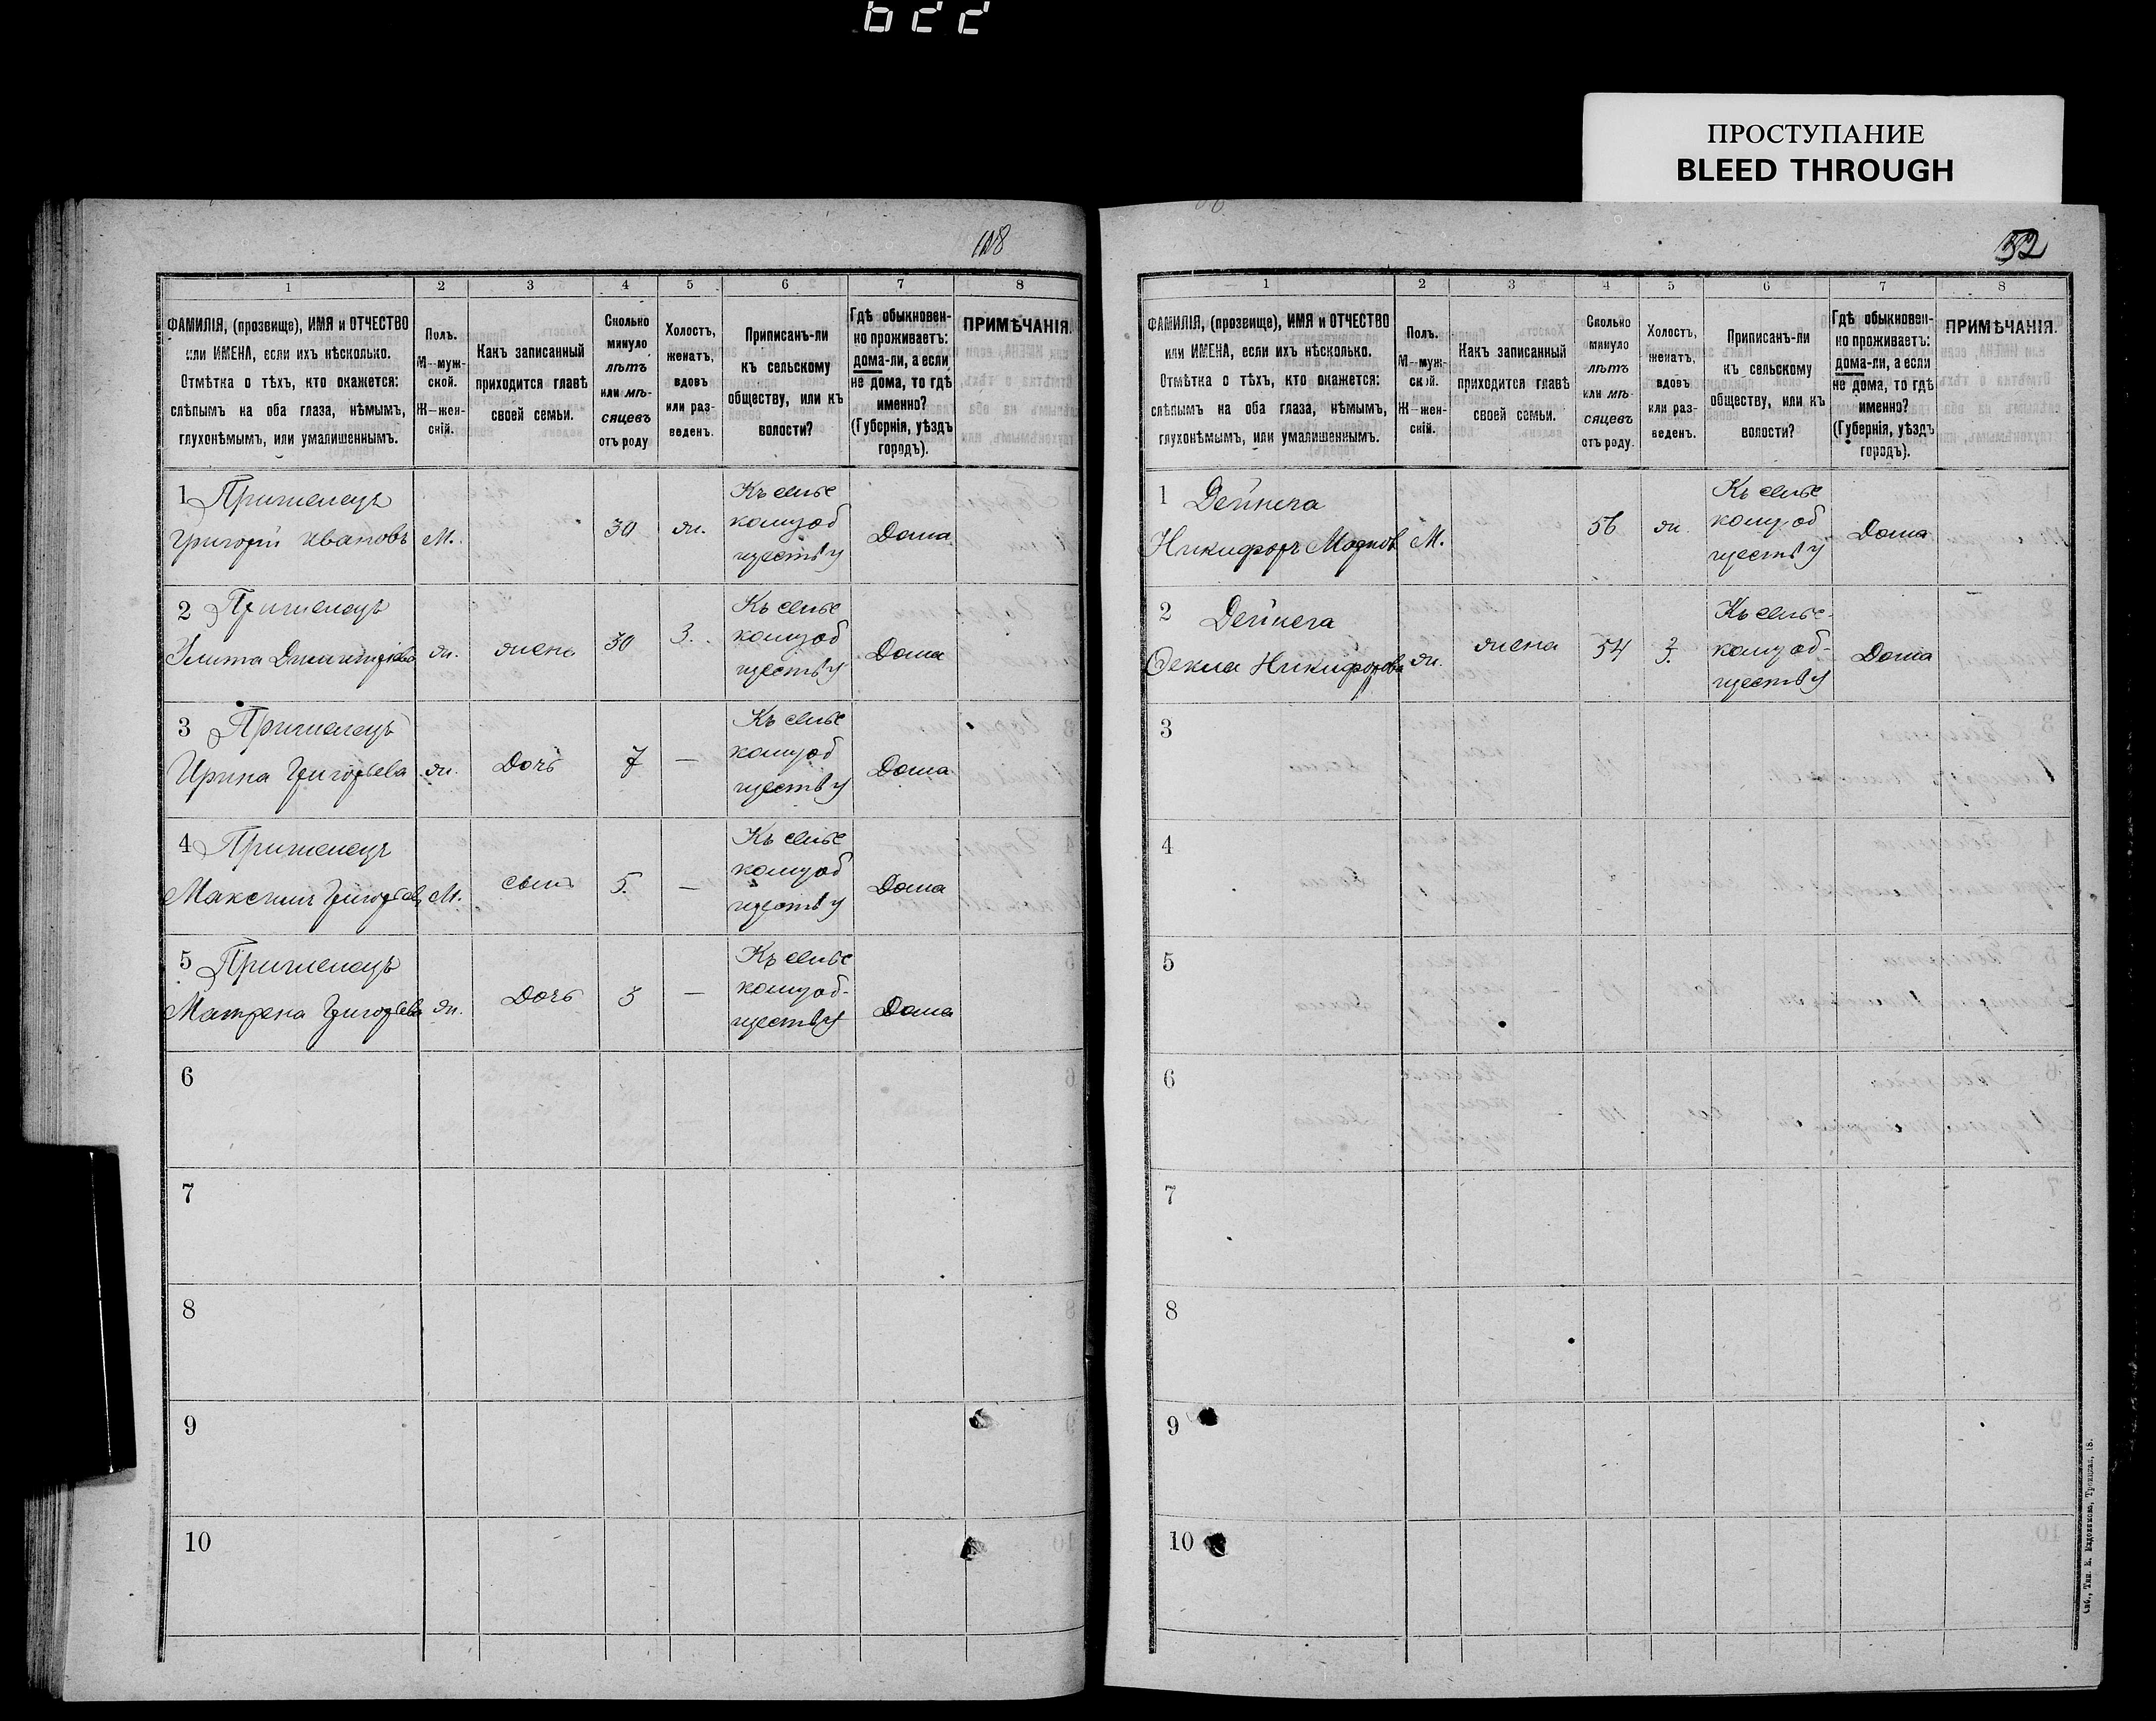 ПРОСТУПАНИЕ
BLEED THROUGH
118
1 2 3 4 5 6 7 8
ФАМИЛІЯ, (прозвище), ИМЯ и ОТЧЕСТВО
или ИМЕНА, если ихъ нѣсколько.
Отмѣтка о тѣхъ, кто окажется:
слѣпымъ на оба глаза, нѣмымъ,
глухонѣмымъ, или умалишеннымъ.
Полъ.
М—муж-
ской.
Ж—жен-
скій.
Какъ записанный
приходится главѣ
своей семьи.
Сколько
минуло
лѣтъ
или мѣ-
сяцевъ
отъ роду
Холостъ,
женатъ,
вдовъ
или раз-
веденъ.
Приписанъ-ли
къ сельскому
обществу, или къ
волости?
Гдѣ обыкновен-
но проживаетъ:
дома-ли, а если
не дома, то гдѣ
именно?
(Губернія, уѣздъ
городъ).
ПРИМѢЧАНІЯ.
1
Григорій Ивановъ М. 30 ж.
Къ сельс
кому об
ществу
Дома
2
Дмитріева ж. жена 30 З.
Къ сельс
кому об
ществу
Дома
3
Ирина Григорьева ж. Дочь 7 —
Къ сельс
кому об
ществу
Дома
4
Максимъ Григорьевъ М. сынъ 5 —
Къ сельс
кому об
ществу
Дома
5
Матрена Григорьева ж. Дочь 3 —
Къ сельс
кому об-
ществу
Дома
6
7
8
9
10
52
1 2 3 4 5 6 7 8
ФАМИЛІЯ, (прозвище), ИМЯ и ОТЧЕСТВО
или ИМЕНА, если ихъ нѣсколько.
Отмѣтка о тѣхъ, кто окажется:
слѣпымъ на оба глаза, нѣмымъ,
глухонѣмымъ, или умалишеннымъ.
Полъ.
М—муж-
ской.
Ж—жен-
скій.
Какъ записанный
приходится главѣ
своей семьи.
Сколько
минуло
лѣтъ
или мѣ-
сяцевъ
отъ роду.
Холостъ,
женатъ,
вдовъ
или раз-
веденъ.
Приписанъ-ли
къ сельскому
обществу, или къ
волости?
Гдѣ обыкновен-
но проживаетъ:
дома-ли, а если
не дома, то гдѣ
именно?
(Губернія, уѣздъ
городъ).
ПРИМѢЧАНІЯ.
1 Дейнега
Никифоръ М. 56 ж.
Къ сельс
кому об
ществу
Дома
2 Дейнега
Никифорова ж. жена 54 З.
Къ сельс-
кому об-
ществу
Дома
3
4
5
6
7
8
9
10